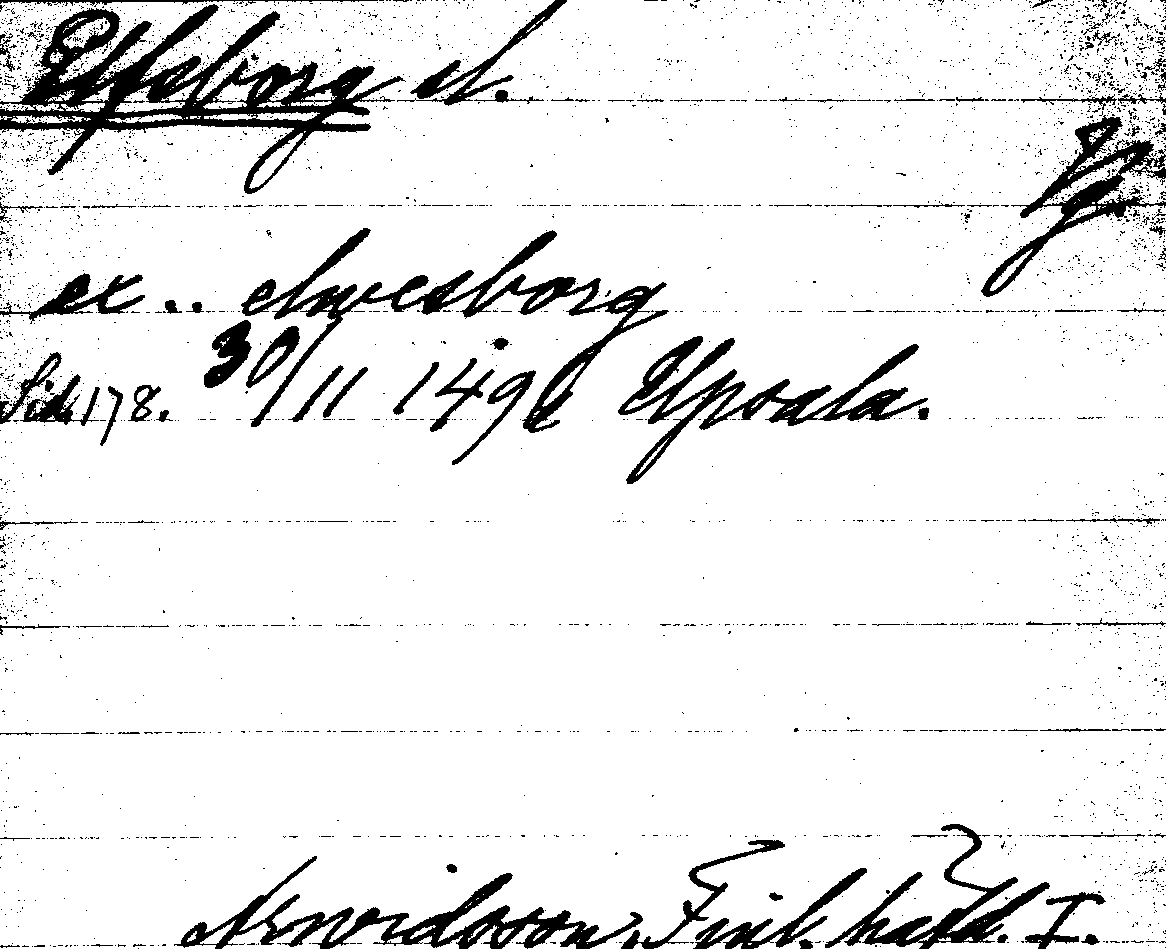 Elfsborg sl.
Vg.
ex .. elwesborg
Sid. 178. 30/11 149 Upsala.
Arwidsson, Finl. hafd. I.